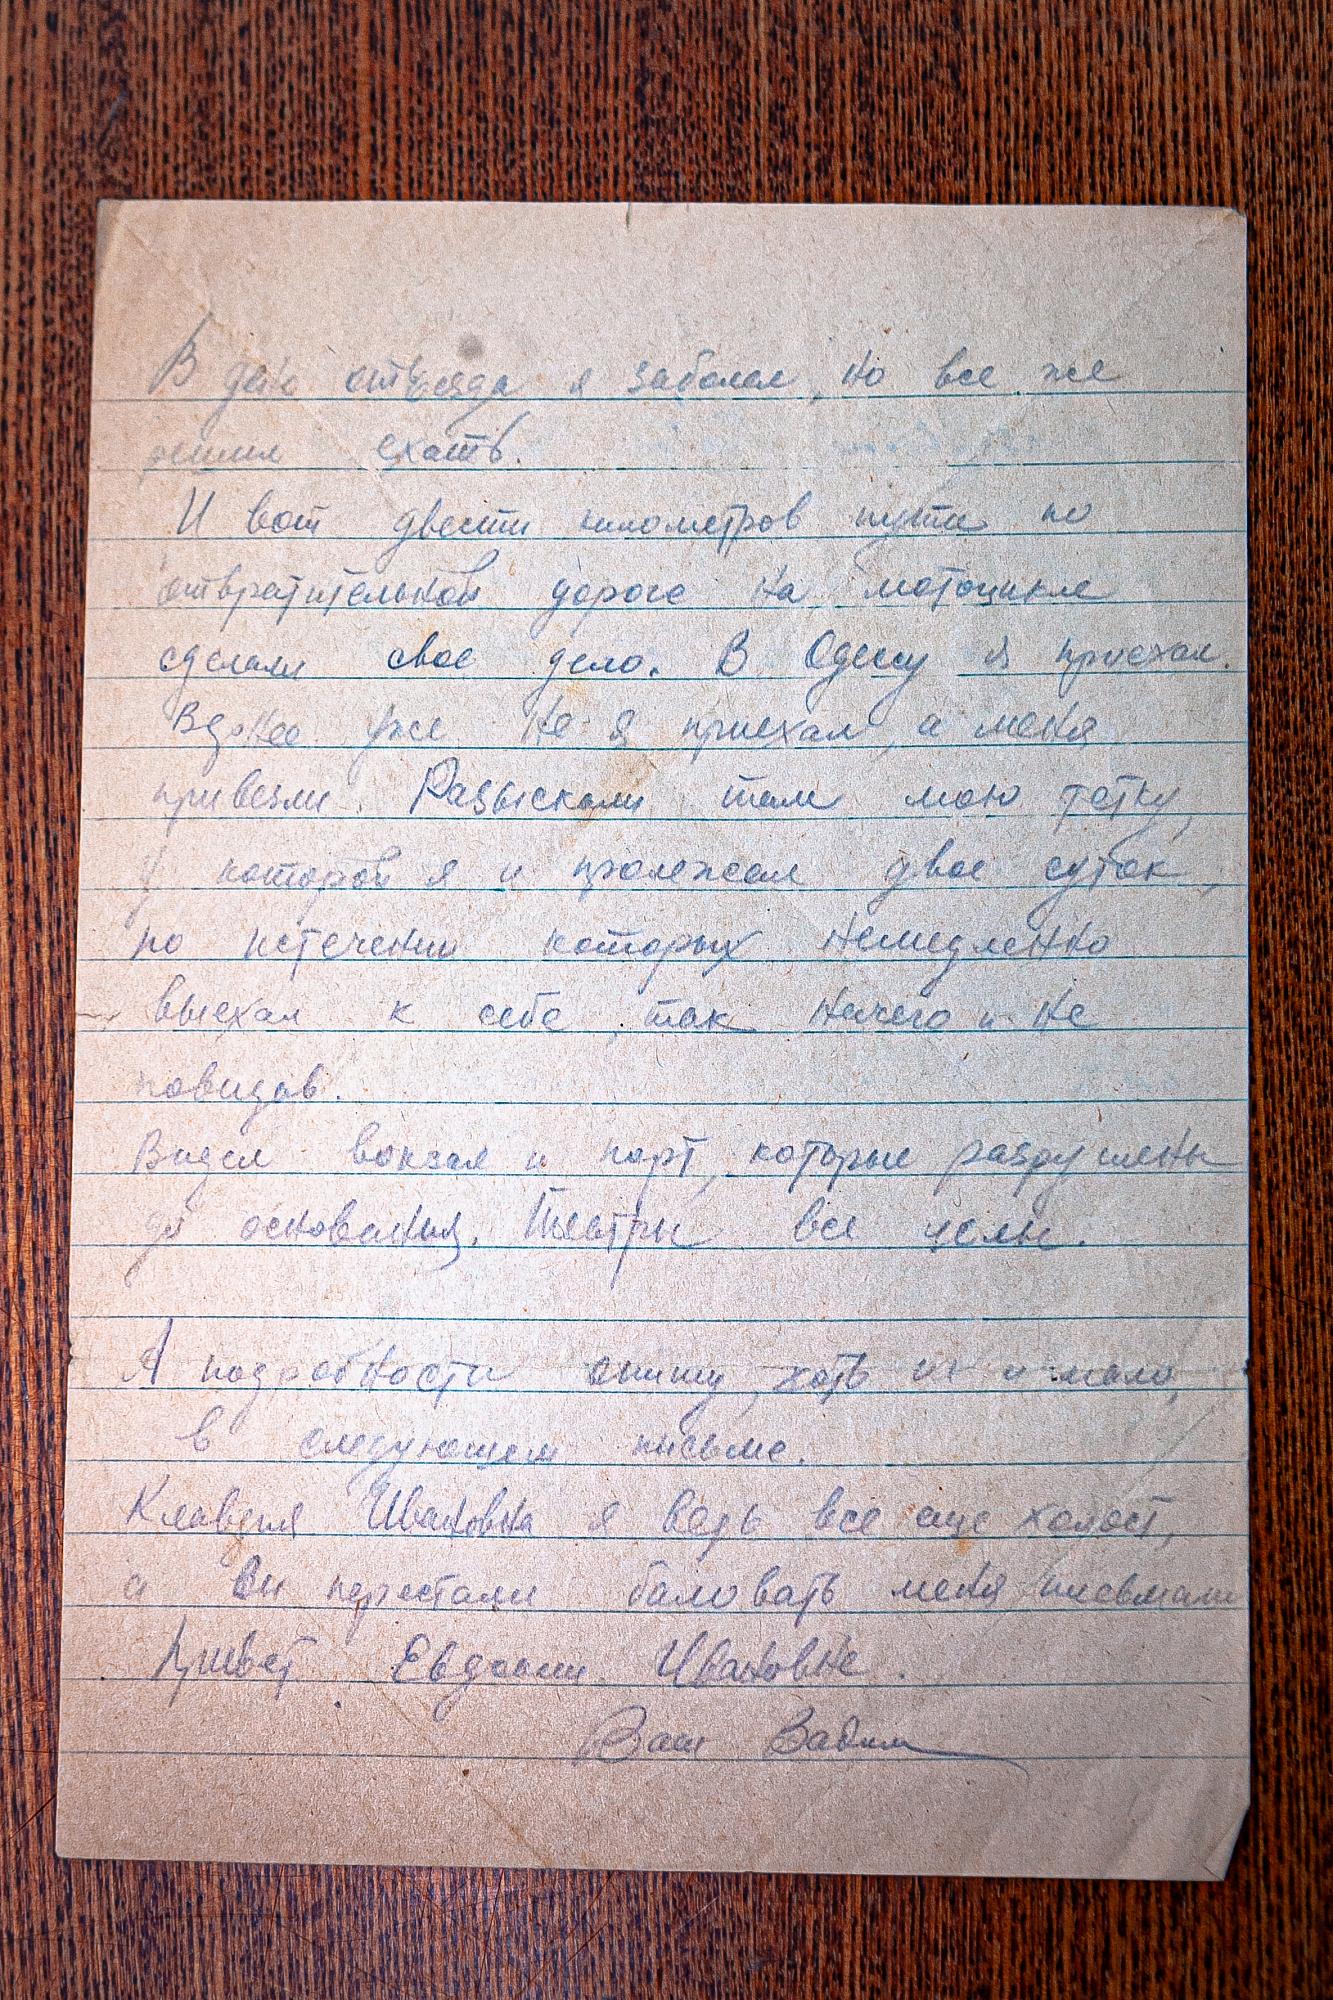 В день отъезда я заболел, но все же
решил ехать.
И вот двести километров пути по
отвратительной дороге на мотоцикле
сделали свое дело. В Одессу я приехал.
Вернее уже не я приехал, а меня
привезли. Разыскали там мою тетку,
у которой я и пролежал двое суток,
по истечении которых немедленно
выехал к себе, так ничего и не
повидав.
Видел вокзал и порт, которые разрушены
до основания. Театры все целы.
А подробности опишу, хоть их и мало,
в следующем письме.
Клавдия Ивановна я ведь все еще холост,
а вы перестали баловать меня письмами
Привет Евдокии Ивановне.
Ваш Вадим